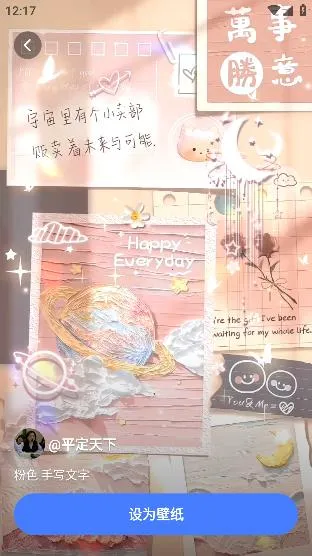 12:17
萬事
勝意
宇宙里有个小卖部
贩卖着未来与可能.
Happy
Everyday
're the gift I've been
waiting for my whole life.
You & Me =
@平定天下
粉色 手写文字
设为壁纸